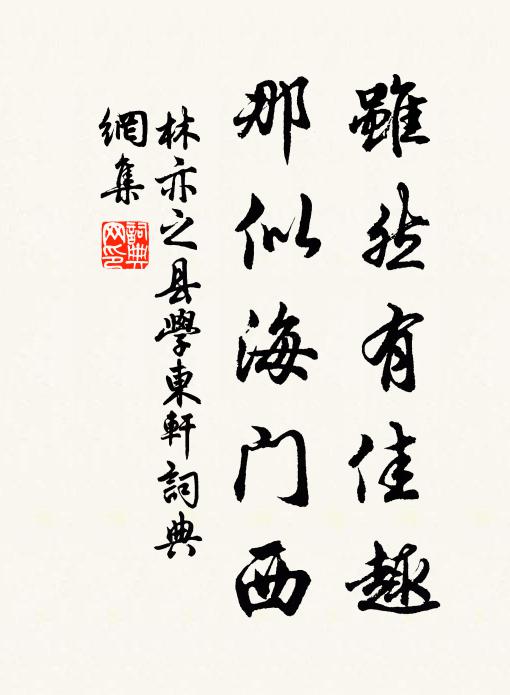 雖然有佳趣
那似海门西
林亦之县學東軒詞典
網集
詞典
网印